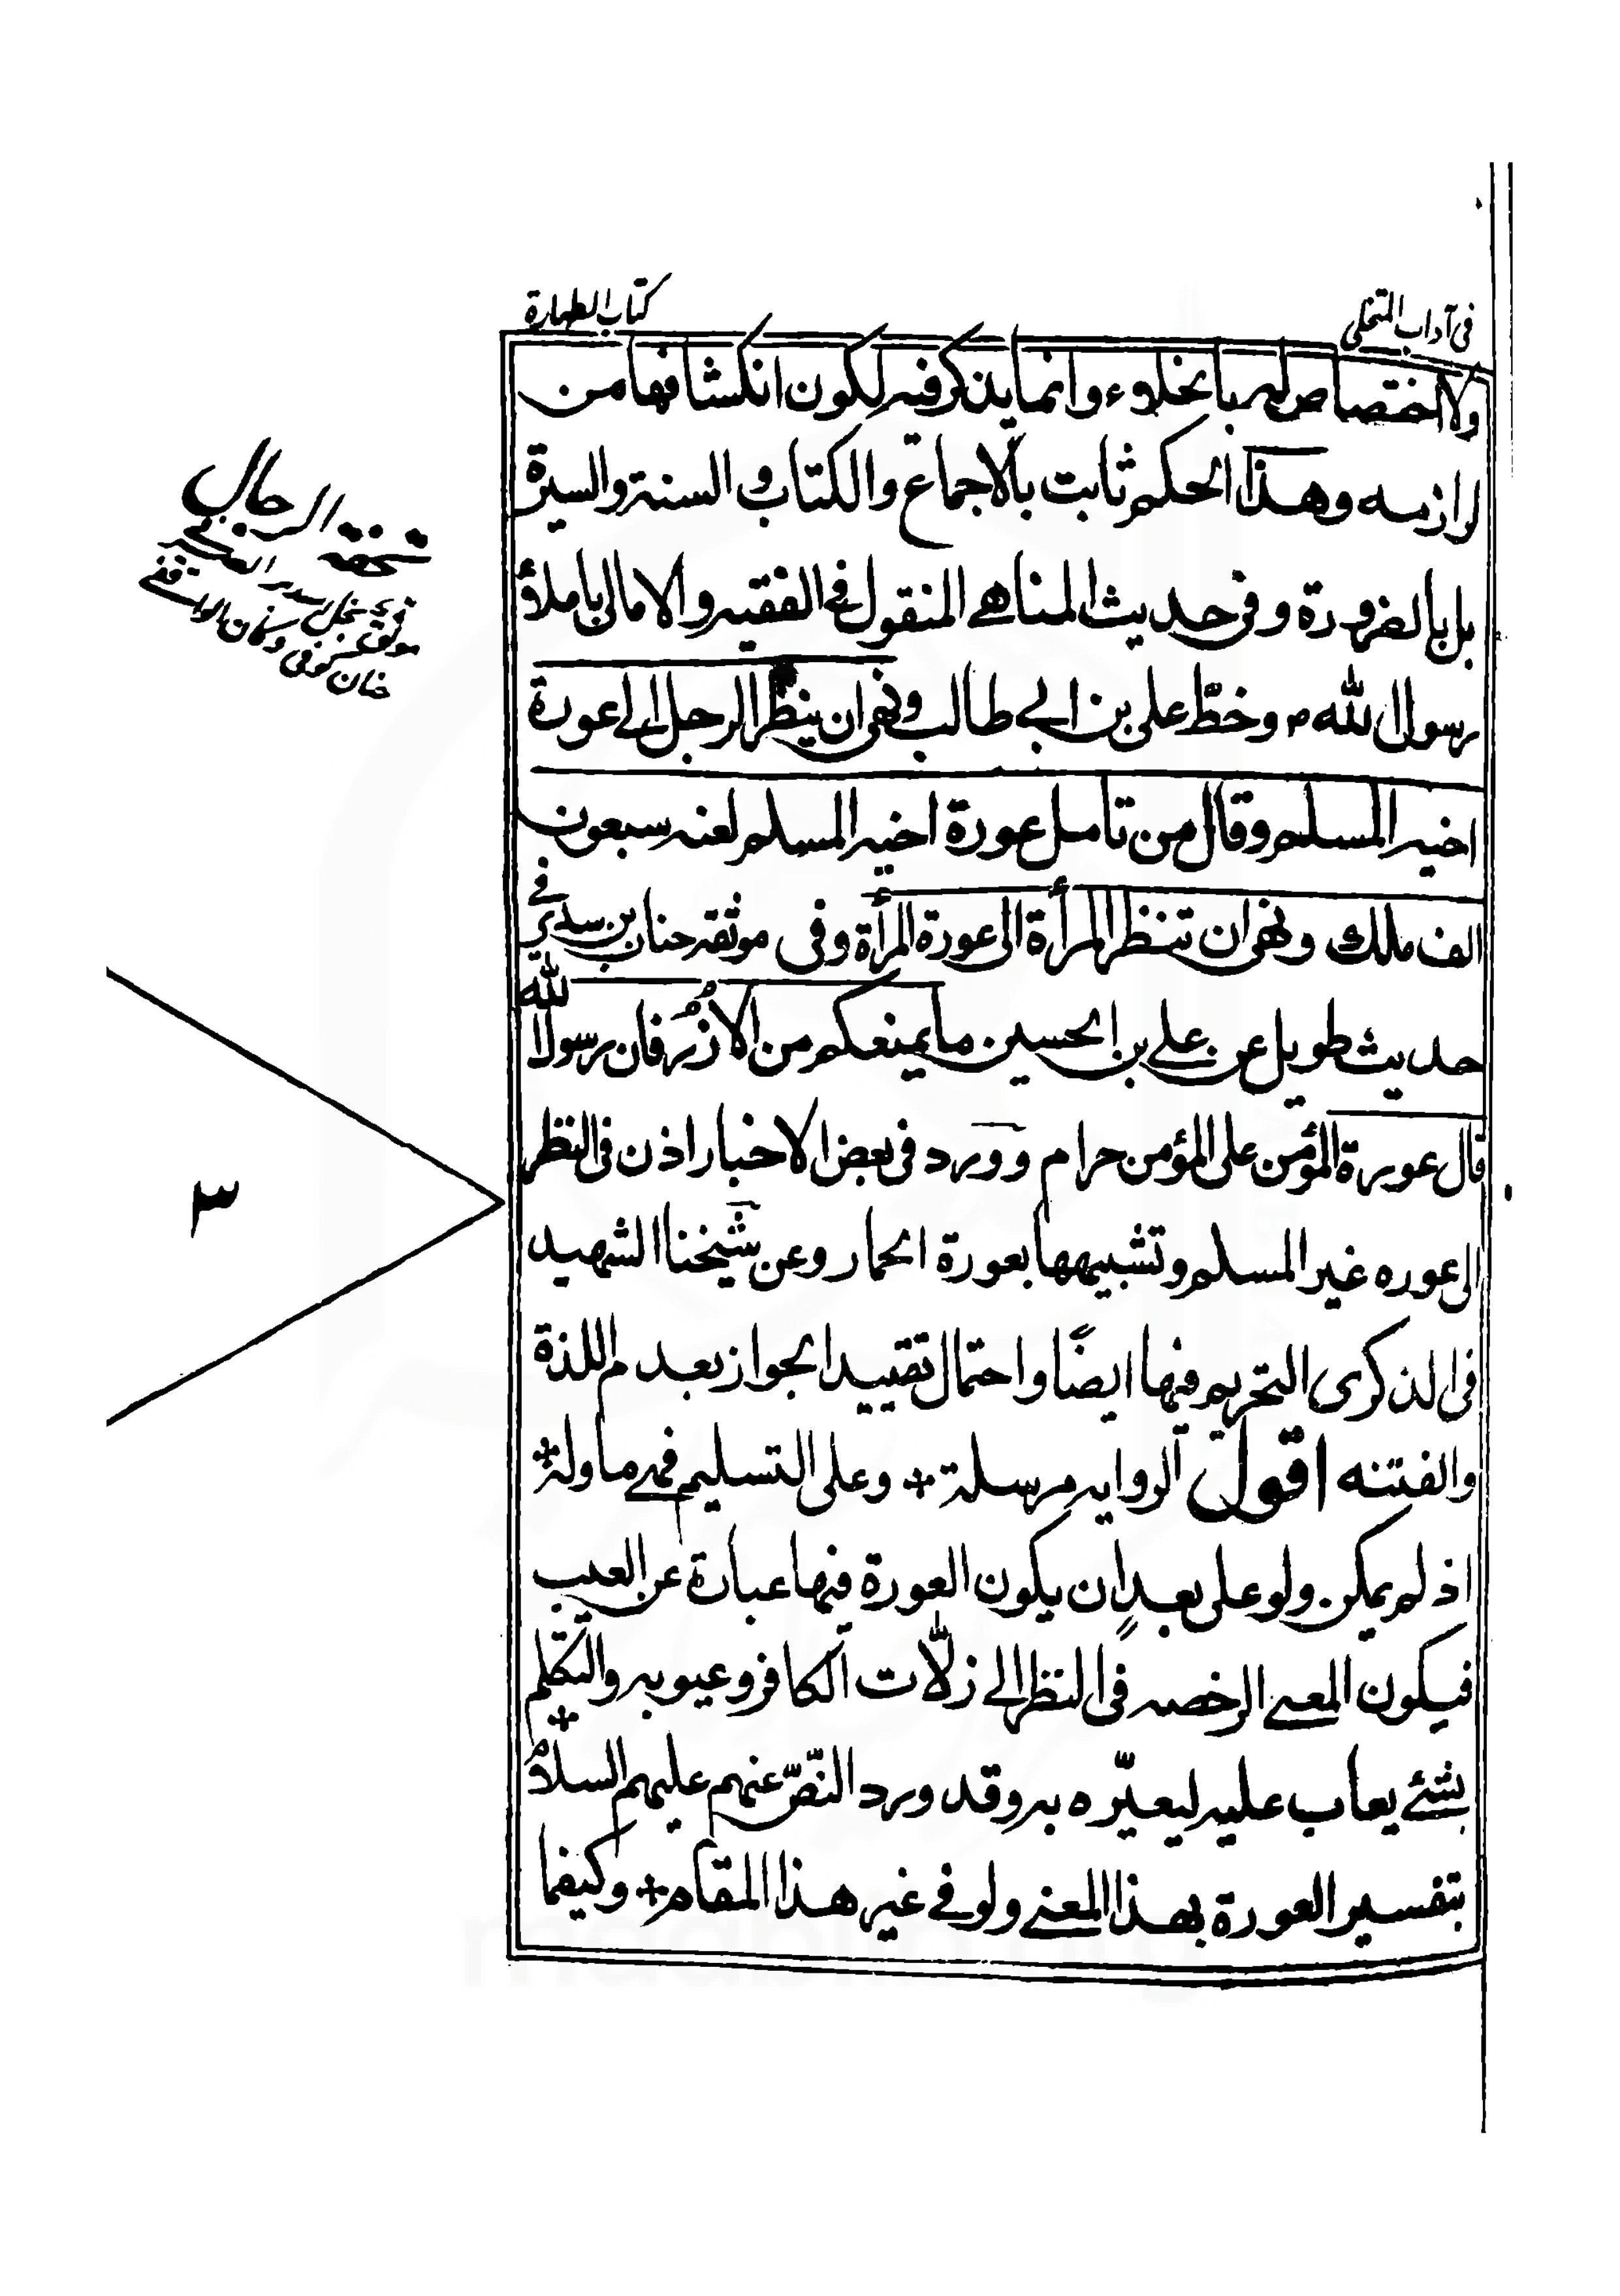 فى آداب التخلى
كتاب الطهارة
ولا اختصاص له بالخلوء وانما يذكر فيه لكون انكشافها من
لوازمه وهذا الحكم ثابت بالاجماع والكتاب و السنة والسيرة
بل بالضرورة وفى حديث المناهى المنقول فى الفقيه والامالى باملاؤ
رسول الله ص وخطّ على بن ابى طالب ونهى ان ينظر الرجل الى عورة
اخيه المسلم وقال من تامل عورة اخيه المسلم لعنه سبعون
الف ملك ونهى ان تنظر المرأة الى عورة المرأة وفى موثقة حنان بن سدير فى
حديث طويل عن على بن الحسين ما يمنعكم من الأزُر فان رسول الله
قال عورة المؤمن على المؤمن حرام وورد فى بعض الاخبار اذن فى النظر
الى عوره غير المسلم وتشبيهها بعورة الحمار وعن شيخنا الشهيد
فى الذكرى التحريم فيها ايضًا واحتمال تقييد الجواز بعدم اللذة
والفتنه اقول الروايه مرسلة وعلى التسليم فهى ماولة
اذ لم يمكن ولو على بعدٍ ان يكون العورة فيها عبارة عن العيب
فيكون المعنى الرخصه فى النظر الى زلّات الكافر وعيوبه والتكلم
بشئ يعاب عليه ليعيّره به وقد ورد النصّ عنهم عليهم السلام
بتفسير العورة بهذا المعنى ولو فى غير هذا المقام وكيفما
الرجال
كوفى
٣